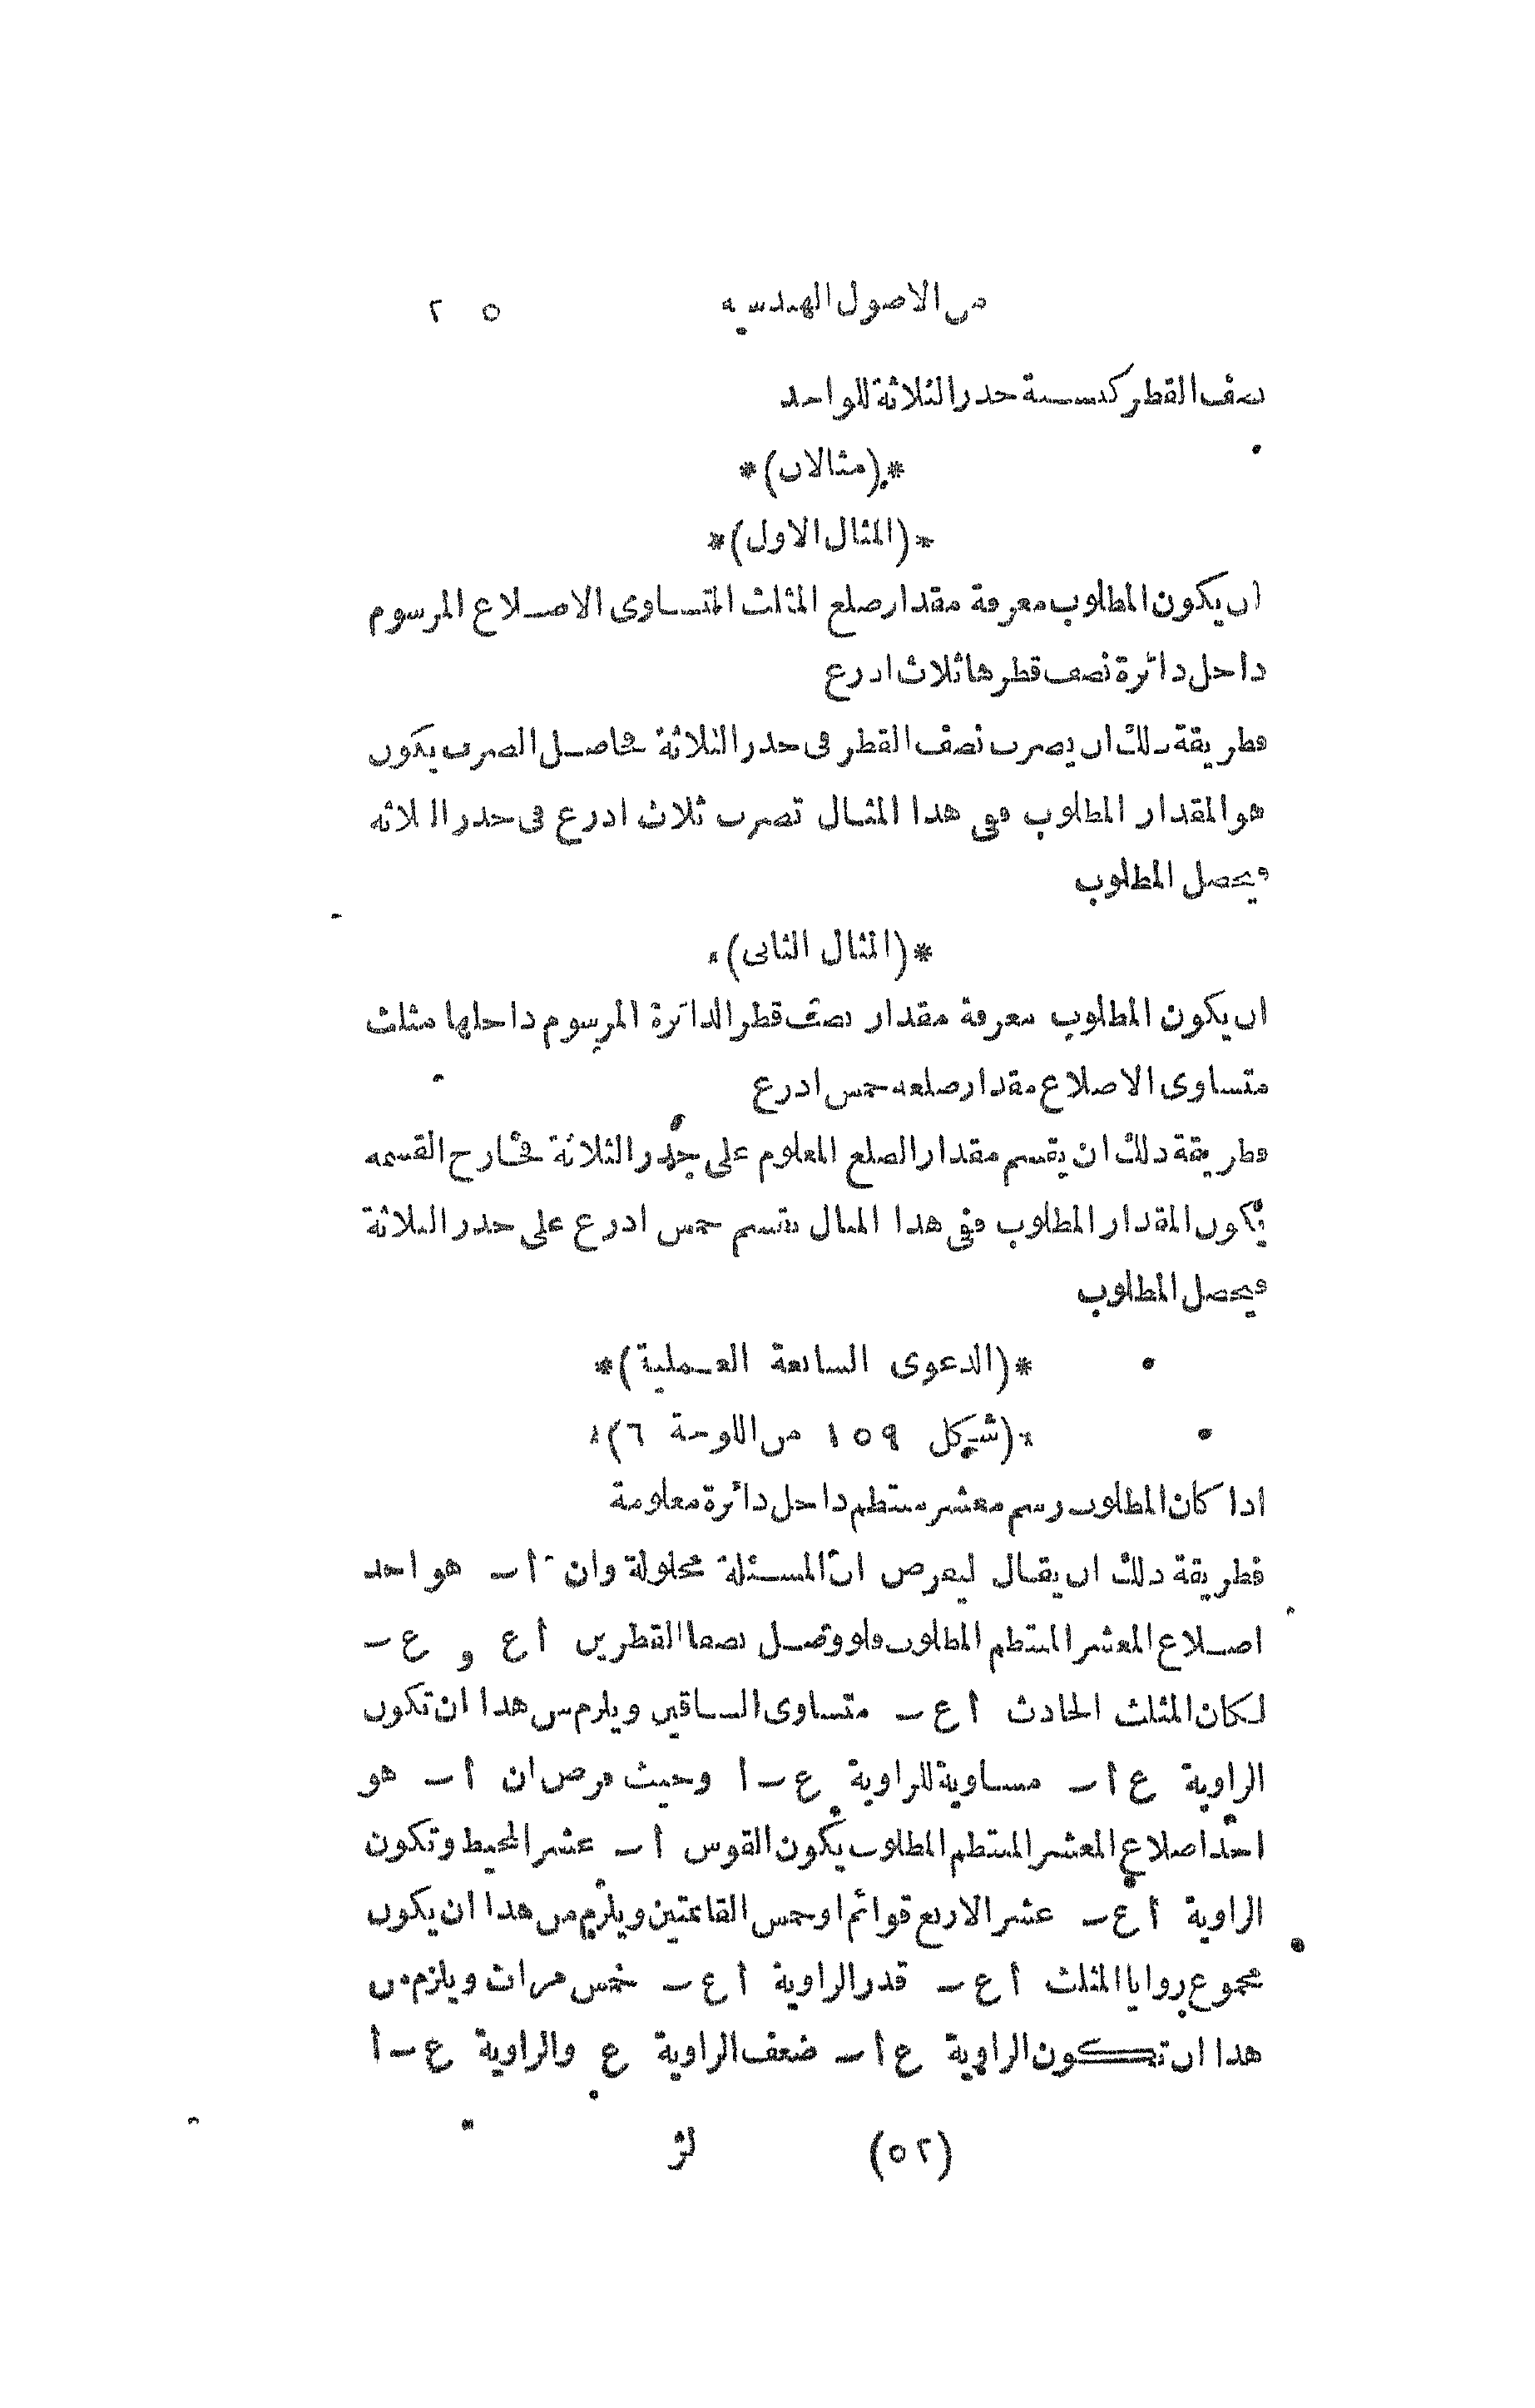 من الاصول الهندسيه ٢٠٥
نصف القطر كنسبة جذر الثلاثة للواحد
*(مثالان)*
*(المثال الاول)*
ان يكون المطلوب معرفة مقدار ضلع المثلث المتساوى الاضلاع المرسوم
داخل دائرة نصف قطرها ثلاث اذرع
فطريقة ذلك ان يضرب نصف القطر فى جذر الثلاثة فحاصل الضرب يكون
هو المقدار المطلوب ففى هذا المثال تضرب ثلاث اذرع فى جذر الثلاثه
فيحصل المطلوب
*(المثال الثانى)*
ان يكون المطلوب معرفة مقدار نصف قطر الدائرة المرسوم داخلها مثلث
متساوى الاضلاع مقدار ضلعه خمس اذرع
فطريقة ذلك ان يقسم مقدار الضلع المعلوم على جذر الثلاثة فخارج القسمه
يكون المقدار المطلوب ففى هذا المثال تقسم خمس اذرع على جذر الثلاثة
فيحصل المطلوب
*(الدعوى السابعة العملية)*
*(شكل ١٥٩ من اللوحة ٦)*
اذا كان المطلوب رسم معشر منتظم داخل دائرة معلومة
فطريقة ذلك ان يقال ليفرض ان المسئلة محلولة وان أ ـ هو احد
اضلاع المعشر المنتظم المطلوب فلو وصل نصفا القطرين أ ع و ع ـ
لكان المثلث الحادث أ ع ـ متساوى الساقين ويلزم من هذا ان تكون
الزاوية ع أ ـ مساوية للزاوية ع ـ أ وحيث فرض ان أ ـ هو
احد اضلاع المعشر المنتظم المطلوب يكون القوس أ ـ عشر المحيط وتكون
الزاوية أ ع ـ عشر الاربع قوائم او خمس القائمتين ويلزم من هذا ان يكون
مجموع زوايا المثلث أ ع ـ قدر الزاوية أ ع ـ خمس مرات ويلزم من
هذا ان تكون الزاوية ع أ ـ ضعف الزاوية ع والزاوية ع ـ أ
(٥٢) لز